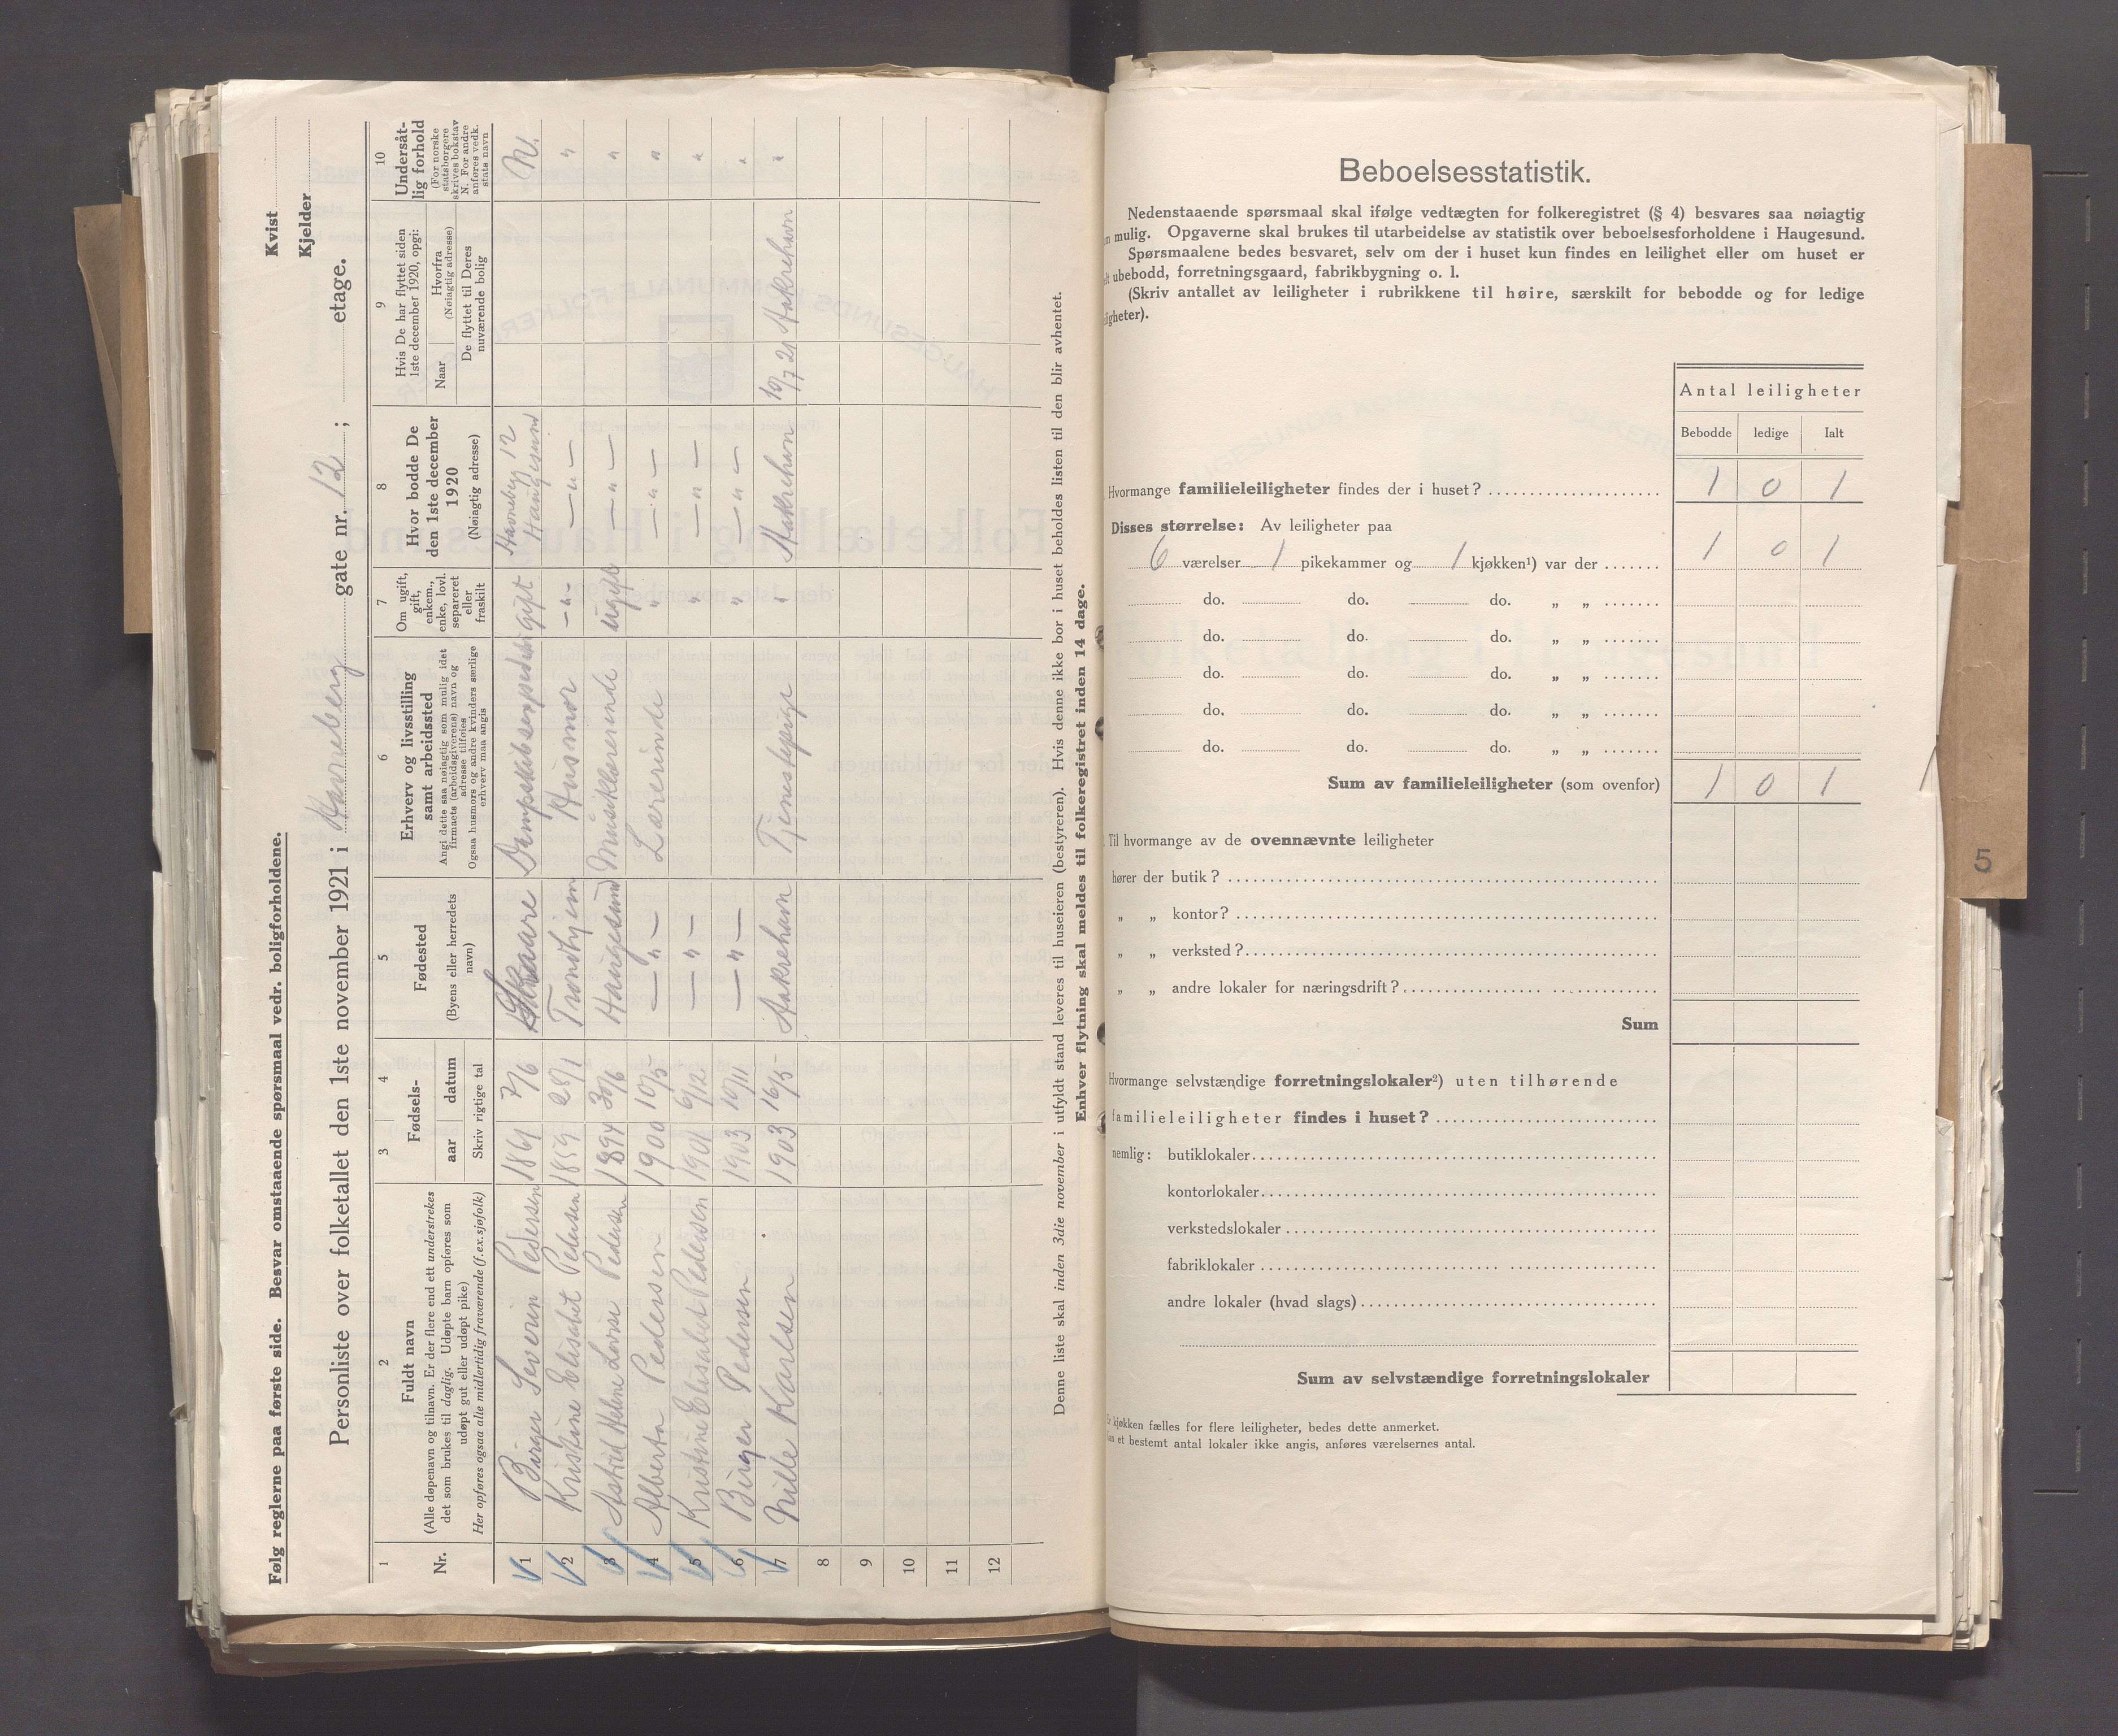 Følg reglerne paa første side. Besvar omstaaende spørsmaal vedr. boligforholdene.
Kvist
Kjelder
Personliste over folketallet den 1ste november 1921 i Havreberg gate nr. 12 ; etage.
1 2 3 4 5 6 7 8 9 10
Nr.
Fuldt navn
(Alle døpenavn og tilnavn. Er der flere end ett understrekes
det som brukes til daglig. Udøpte barn opføres som
udøpt gut eller udøpt pike)
Her opføres ogsaa alle midlertidig fraværende (f.ex.sjøfolk)
Fødsels-
aar datum
Skriv rigtige tal
Fødested
(Byens eller herredets
navn)
Erhverv og livsstilling
samt arbeidssted
Angi dette saa nøiagtig som mulig idet
firmaets (arbeidsgiverens) navn og
adresse tilføies
Ogsaa husmors og andre kvinders særlige
erhverv maa angis
Om ugift,
gift,
enkem.,
enke, lovl.
separeret
eller
fraskilt
Hvor bodde De
den 1ste december
1920
(Nøiagtig adresse)
Hvis De har flyttet siden
1ste december 1920, opgi:
Naar
Hvorfra
(Nøiagtig adresse)
De flyttet til Deres
nuværende bolig
Undersåt-
lig forhold
(For norske
statsborgere
skrives bokstav
N. For andre
anføres vedk.
stats navn
1 Birger Severin Pedersen 1861 7/6 Skaare Dampskibsexpeditør gift Havreberg 12 Haugesund N.
2 Kristine Elisabet Pedersen 1859 28/1 Trondhjem Husmor —"— —"— "
3 Astrid Helene Lovise Pedersen 1894 30/6 Haugesund Musiklærerinde ugift —"— "
4 Alberta Pedersen 1900 10/5 —"— Lærerinde " —"— "
5 Kristine Elisabet Pedersen 1901 6/12 —"— " —"— "
6 Birger Pedersen 1903 10/11 —"— " —"— "
7 Nille Karlsen 1903 16/5 Aakrehavn Tjenestepige " Aakrehavn 10/7 21 Aakrehavn "
8
9
10
11
12
Denne liste skal inden 3die november i utfyldt stand leveres til huseieren (bestyreren). Hvis denne ikke bor i huset beholdes listen til den blir avhentet.
Enhver flytning skal meldes til folkeregistret inden 14 dage.
Beboelsesstatistik.
Nedenstaaende spørsmaal skal ifølge vedtægten for folkeregistret (§ 4) besvares saa nøiagtig
mulig. Opgaverne skal brukes til utarbeidelse av statistik over beboelsesforholdene i Haugesund.
Spørsmaalene bedes besvaret, selv om der i huset kun findes en leilighet eller om huset er
ubebodd, forretningsgaard, fabrikbygning o. l.
(Skriv antallet av leiligheter i rubrikkene til høire, særskilt for bebodde og for ledige
ligheter).
Antal leiligheter
Bebodde ledige Ialt
Hvormange familieleiligheter findes der i huset? 1 0 1
Disses størrelse: Av leiligheter paa
6 værelser 1 pikekammer og 1 kjøkken¹) var der 1 0 1
do. do. do. „ „
do. do. do. „ „
do. do. do. „ „
do. do. do. „ „
do. do. do. „ „
Sum av familieleiligheter (som ovenfor) 1 0 1
Til hvormange av de ovennævnte leiligheter
hører der butik?
„ „ kontor?
„ „ verksted?
„ „ andre lokaler for næringsdrift?
Sum
Hvormange selvstændige forretningslokaler²) uten tilhørende
familieleiligheter findes i huset?
nemlig: butiklokaler
kontorlokaler
verkstedslokaler
fabriklokaler
andre lokaler (hvad slags)
Sum av selvstændige forretningslokaler
kjøkken fælles for flere leiligheter, bedes dette anmerket.
et bestemt antal lokaler ikke angis, anføres værelsernes antal.
5